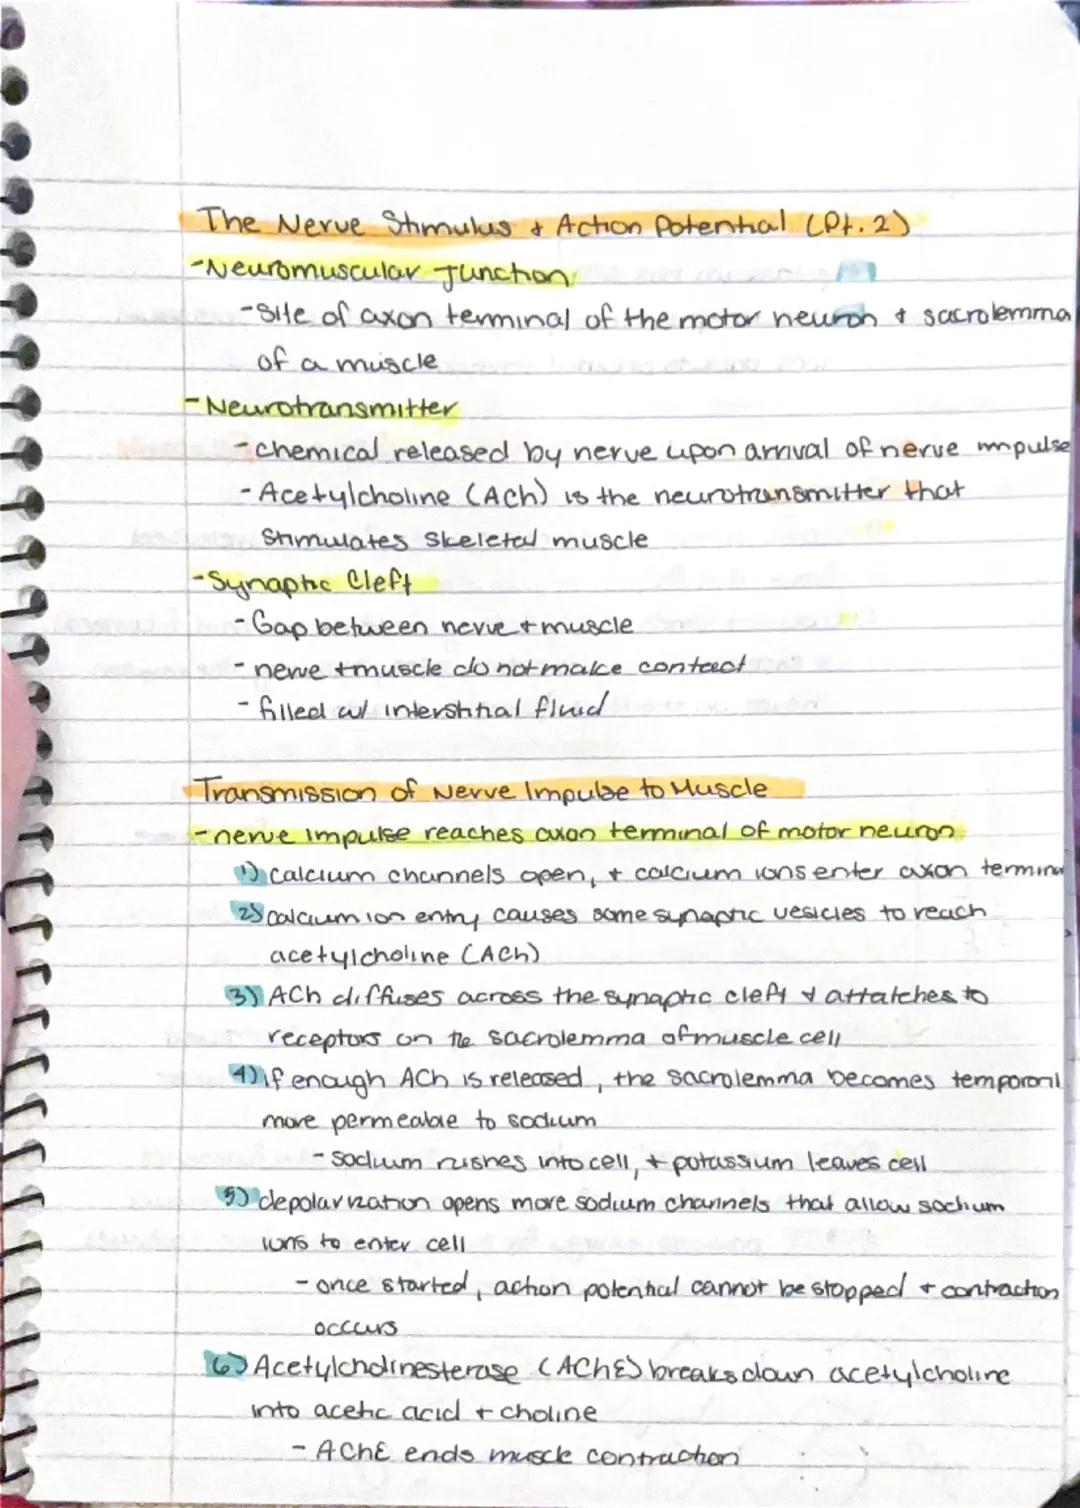 The Nerve Stimulus & Action Potential (Pt. 2)
- Neuromuscular Junction
- Site of axon terminal of the motor neuron & sacrolemma
of a muscle
- Neurotransmitter
- chemical released by nerve upon arrival of nerve impulse
- Acetylcholine (ACh) is the neurotransmitter that
stimulates skeletal muscle
- Synaptic Cleft
- Gap between nerve + muscle
- nerve + muscle do not make contact
- filled w/ interstitial fluid
Transmission of Nerve Impulse to Muscle
- nerve impulse reaches axon terminal of motor neuron
1) calcium channels open, + calcium ions enter axon termina
2) calcium ion entry causes some synaptic vesicles to reach
acetylcholine (ACh)
3) ACh diffuses across the synaptic cleft & attatches to
receptors on the sacrolemma of muscle cell
4) if enough ACh is released, the sacrolemma becomes temporaril
more permeable to sodium
- sodium rushes into cell, + potassium leaves cell
5) depolarization opens more sodium channels that allow sodium
ions to enter cell
- once started, action potential cannot be stopped + contraction
occurs
6) Acetylcholinesterase (AChE) breaks down acetylcholine
into acetic acid + choline
- AChE ends muscle contraction